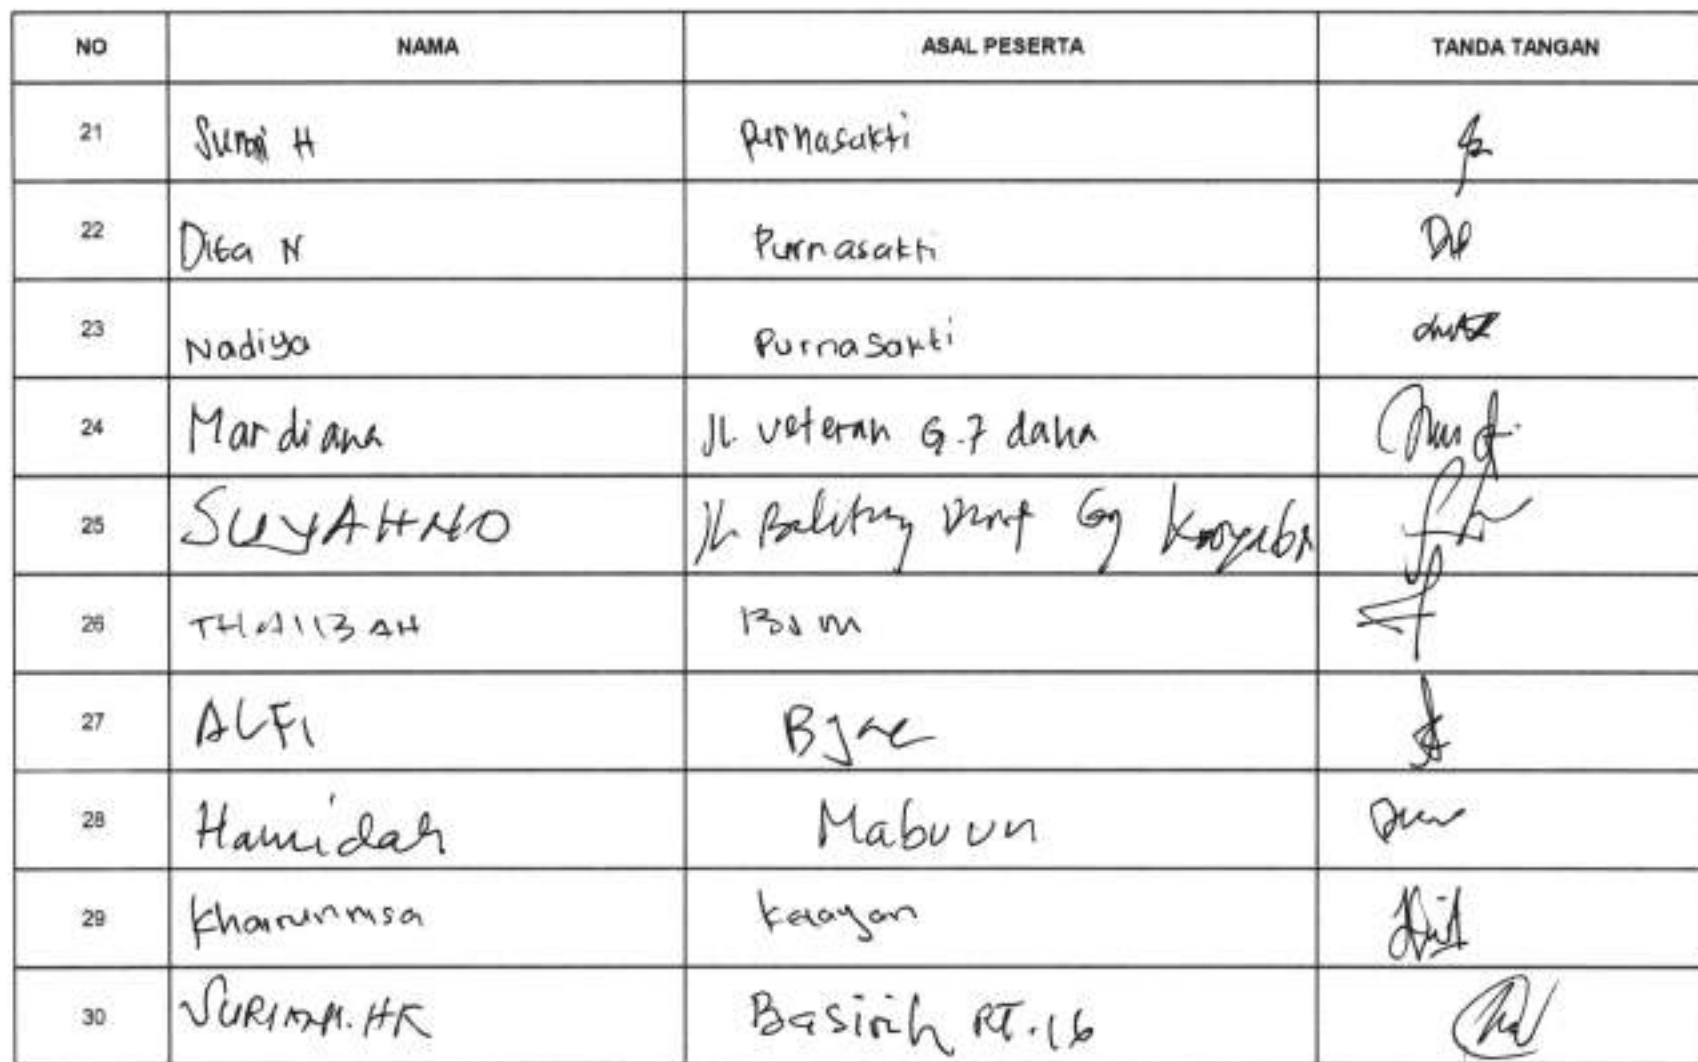 NO NAMA ASAL PESERTA TANDA TANGAN
21 H Purnasakti
22 Dita N Purnasakti
23 Nadiya Purnasakti
24 Mardiana Jl. veteran G.7 daha
25 SUYAHNO Jl. Belitung Darat Gg
26 THAIIBAH BJM
27 ALFI
28 Hamidah Mabuun
29 Khairunnisa Kelayan
30 Basirih RT.16